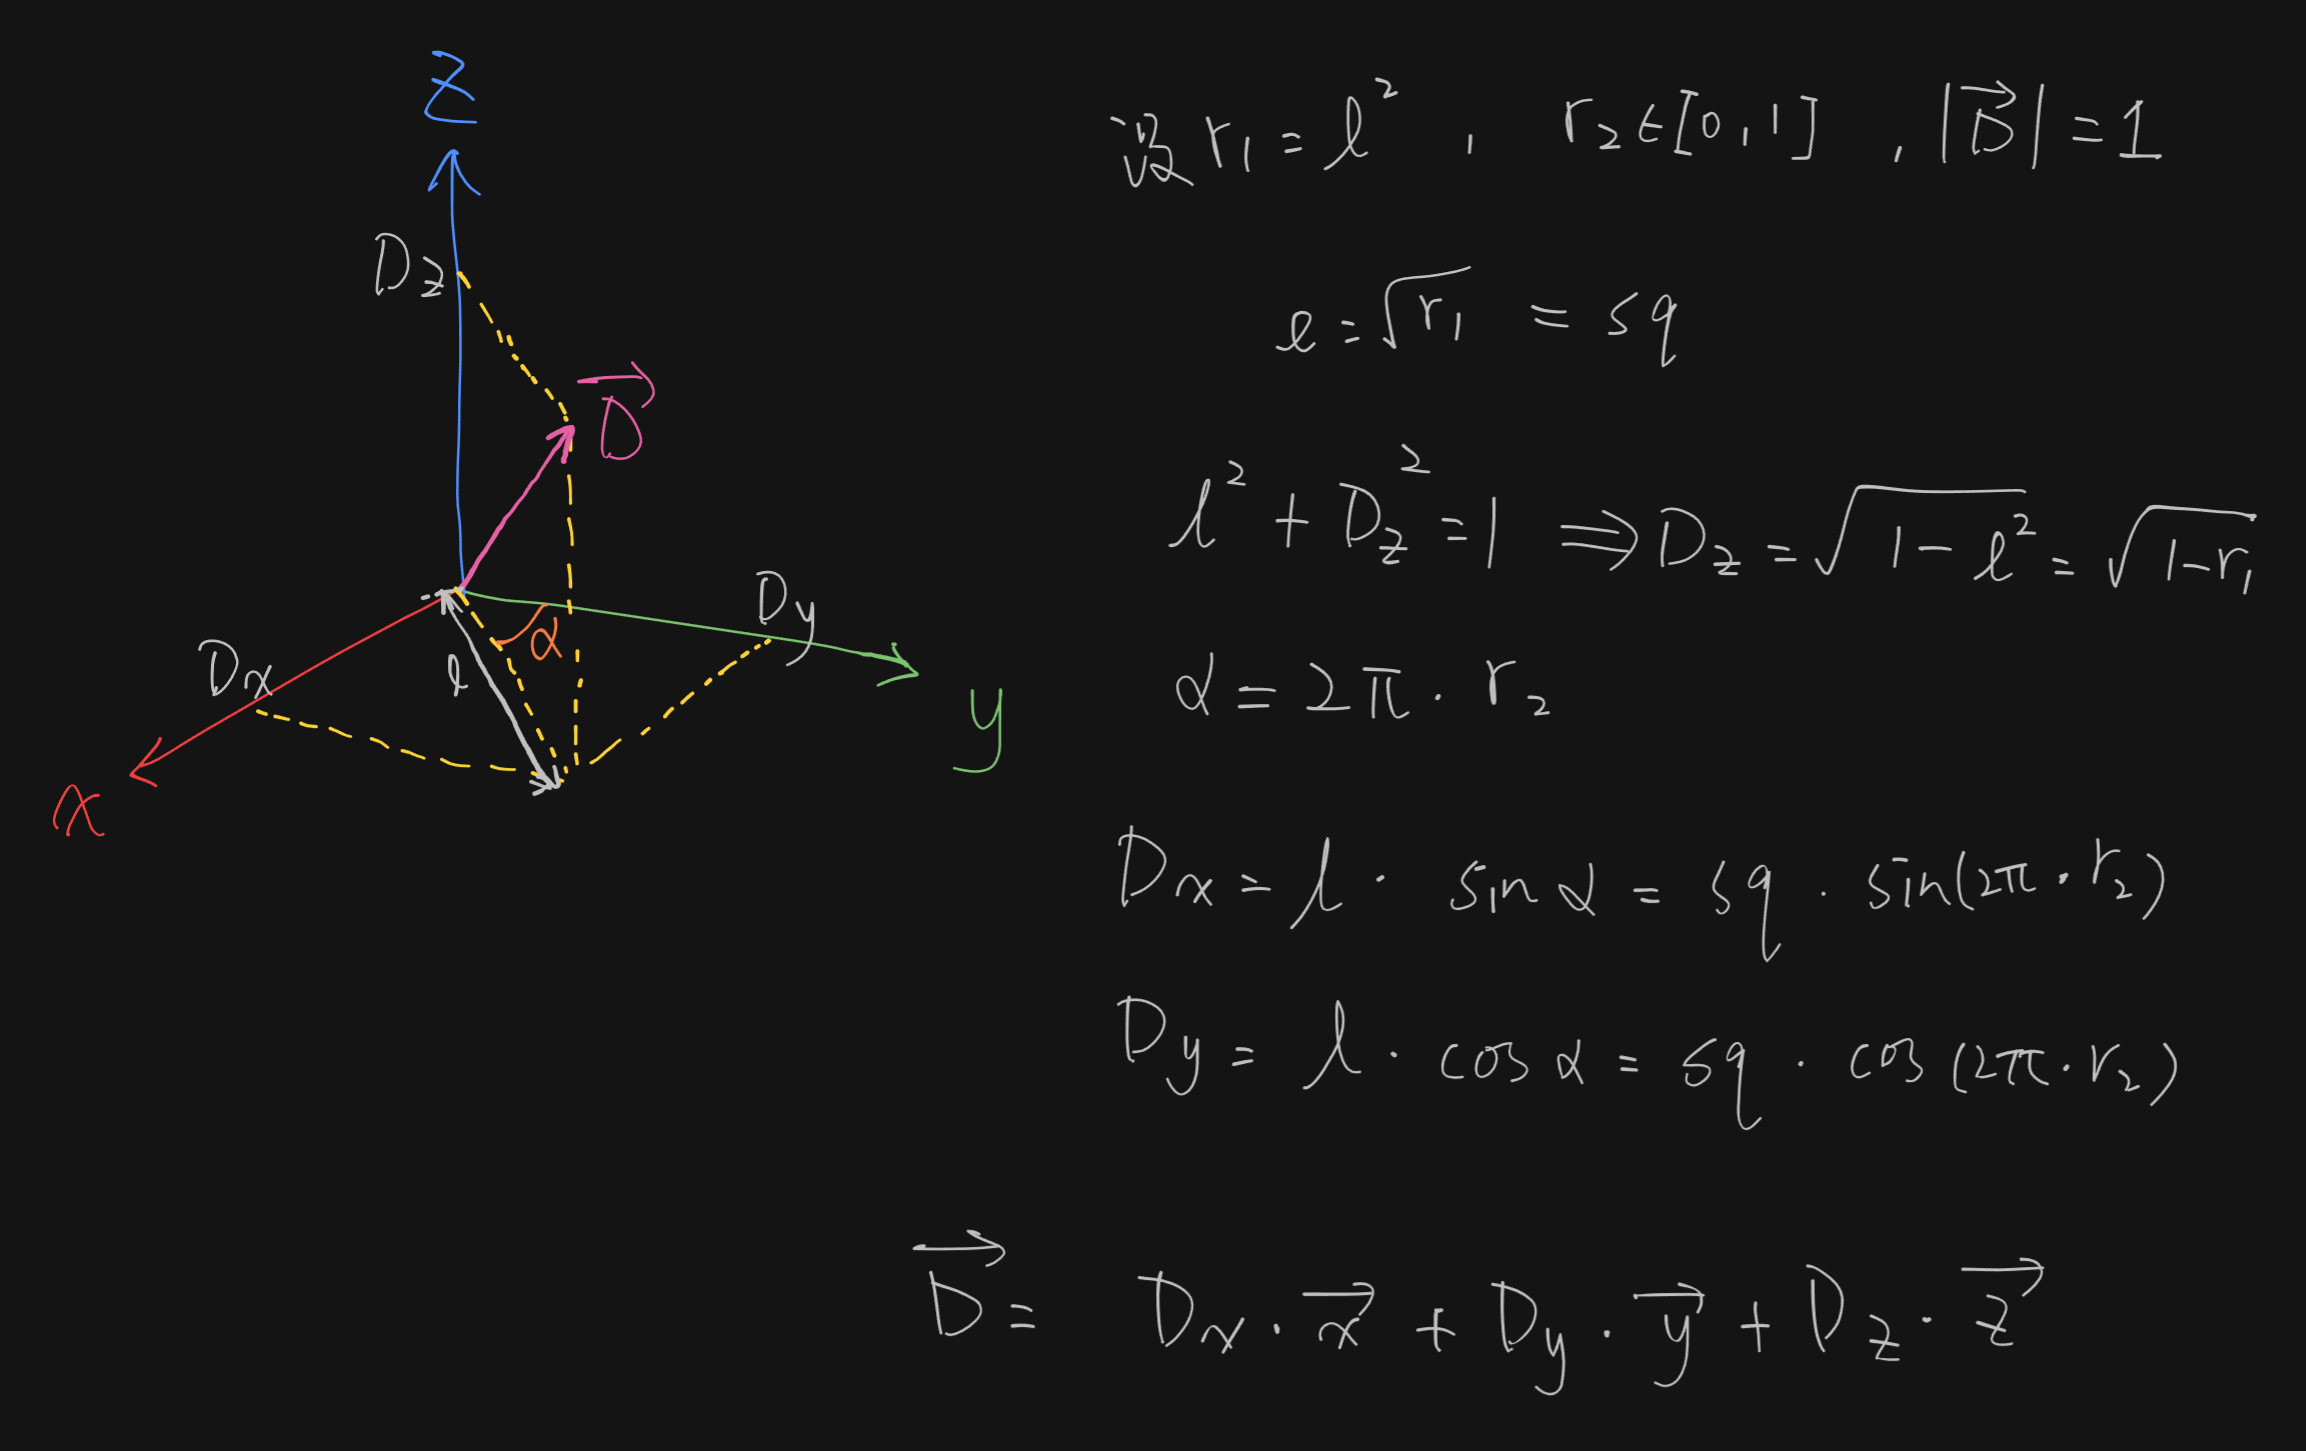 z
D_z
D⃗
D_y
α
D_x
l
y
x
设 r₁ = l² , r₂ ∈ [0,1] , |D⃗| = 1
l = √r₁ = sq
l² + D_z² = 1 ⇒ D_z = √(1-l²) = √(1-r₁)
α = 2π · r₂
D_x = l · sin α = sq · sin(2π · r₂)
D_y = l · cos α = sq · cos(2π · r₂)
D⃗ = D_x · x⃗ + D_y · y⃗ + D_z · z⃗